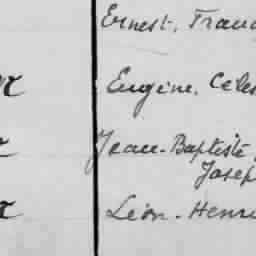 Ernest, Franc
Eugène, Celes
Jean-Baptiste,
Josep
Léon-Henri